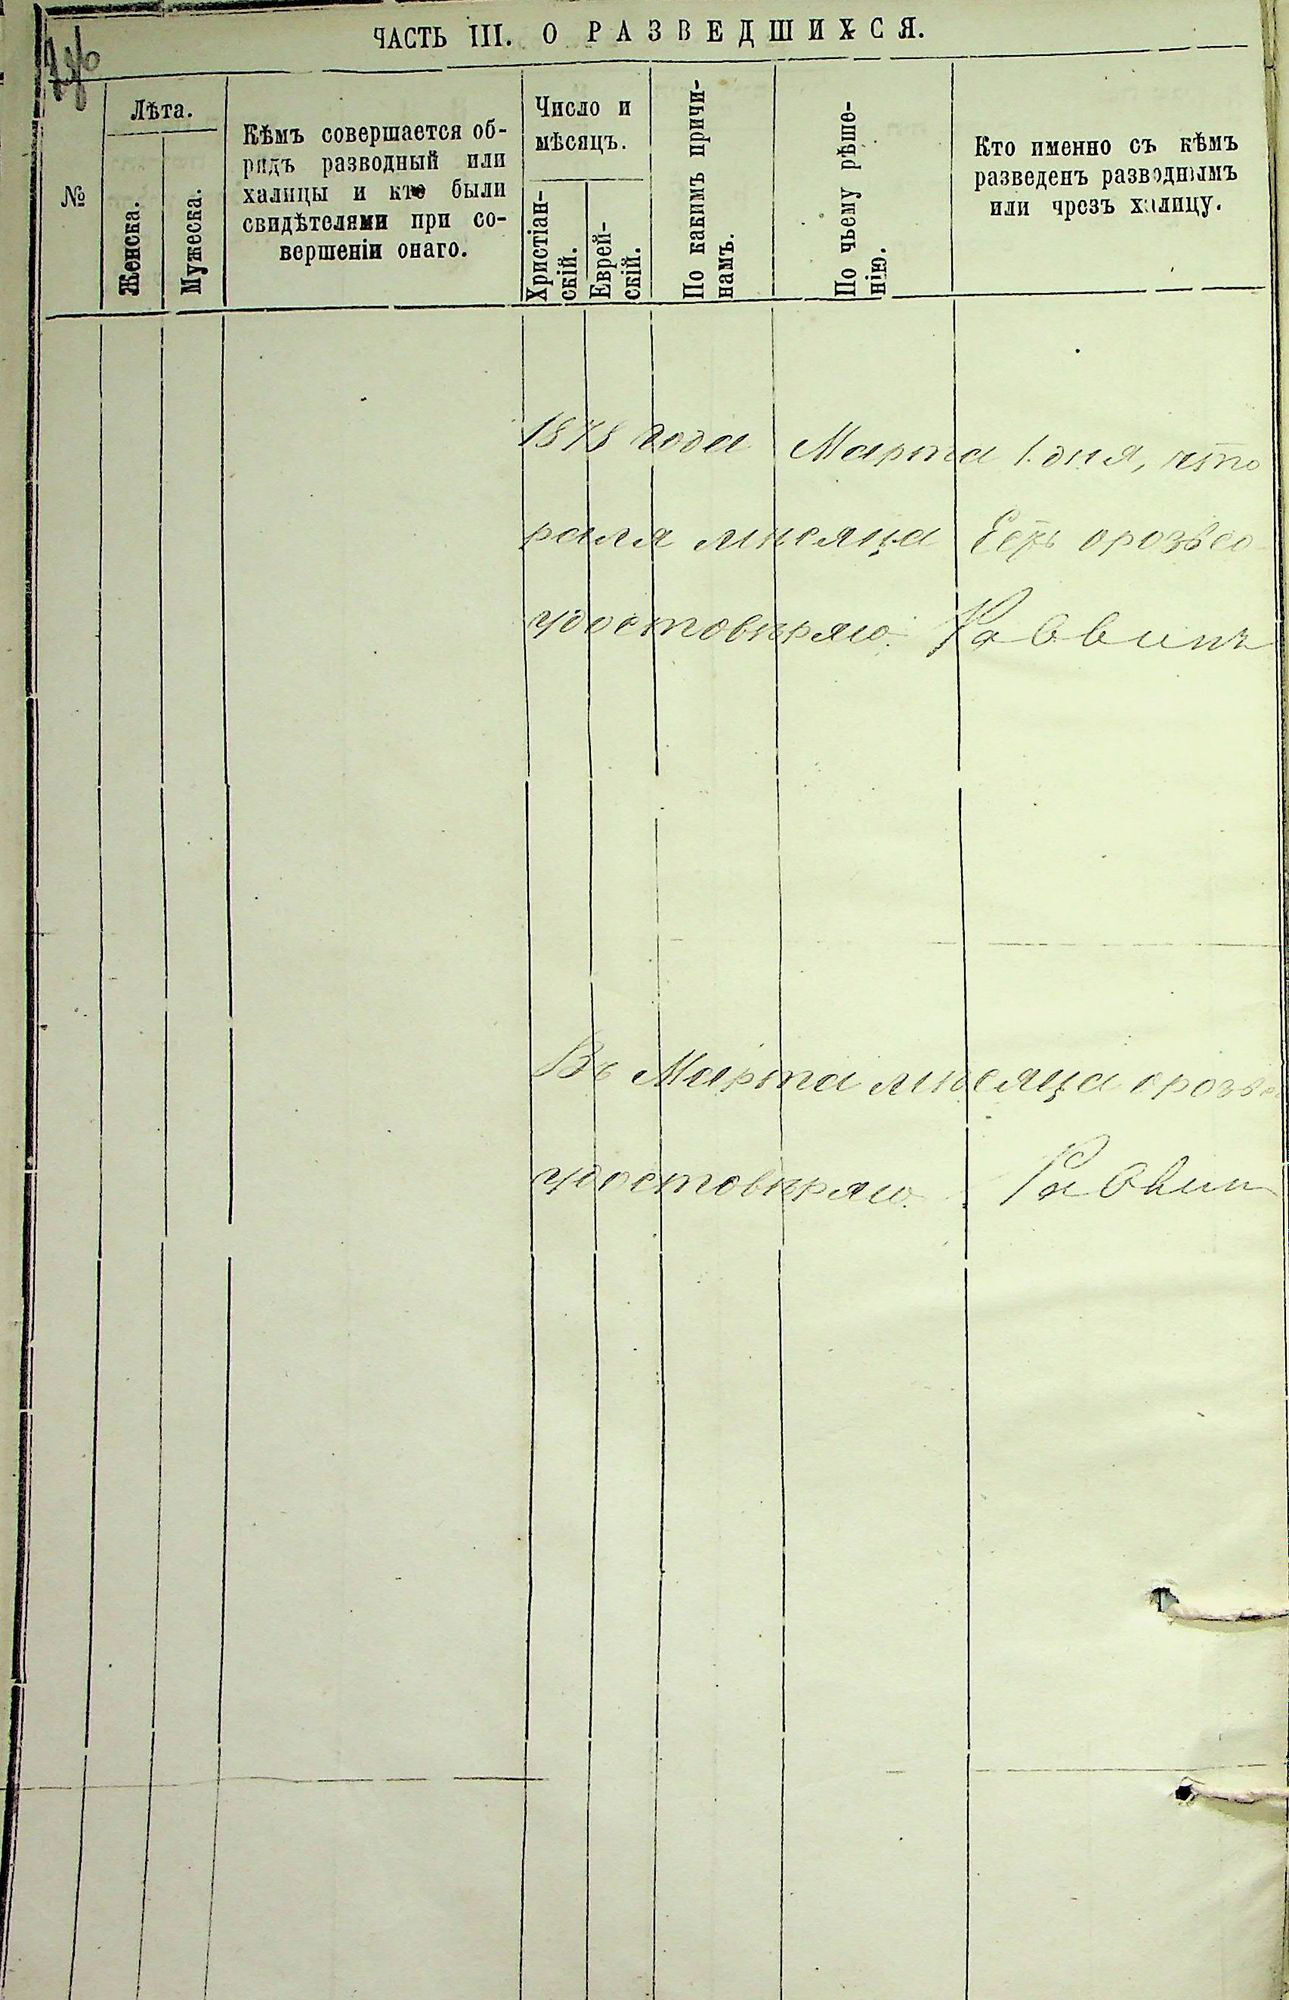 ЧАСТЬ III. О РАЗВЕДШИХСЯ.
№
Лѣта.
Женска.
Мужеска.
Кѣмъ совершается об-
рядъ разводный или
халицы и кто были
свидѣтелями при со-
вершеніи онаго.
Число и
мѣсяцъ.
Христіан-
скій.
Еврей-
скій.
По какимъ причи-
намъ.
По чьему рѣше-
нію.
Кто именно съ кѣмъ
разведенъ разводнымъ
или чрезъ халицу.
1878 года Марта 1 дня, что
раля мѣсяца
удостовѣряю. Раввинъ
Въ Марта мѣсяца
удостовѣряю. Раввин